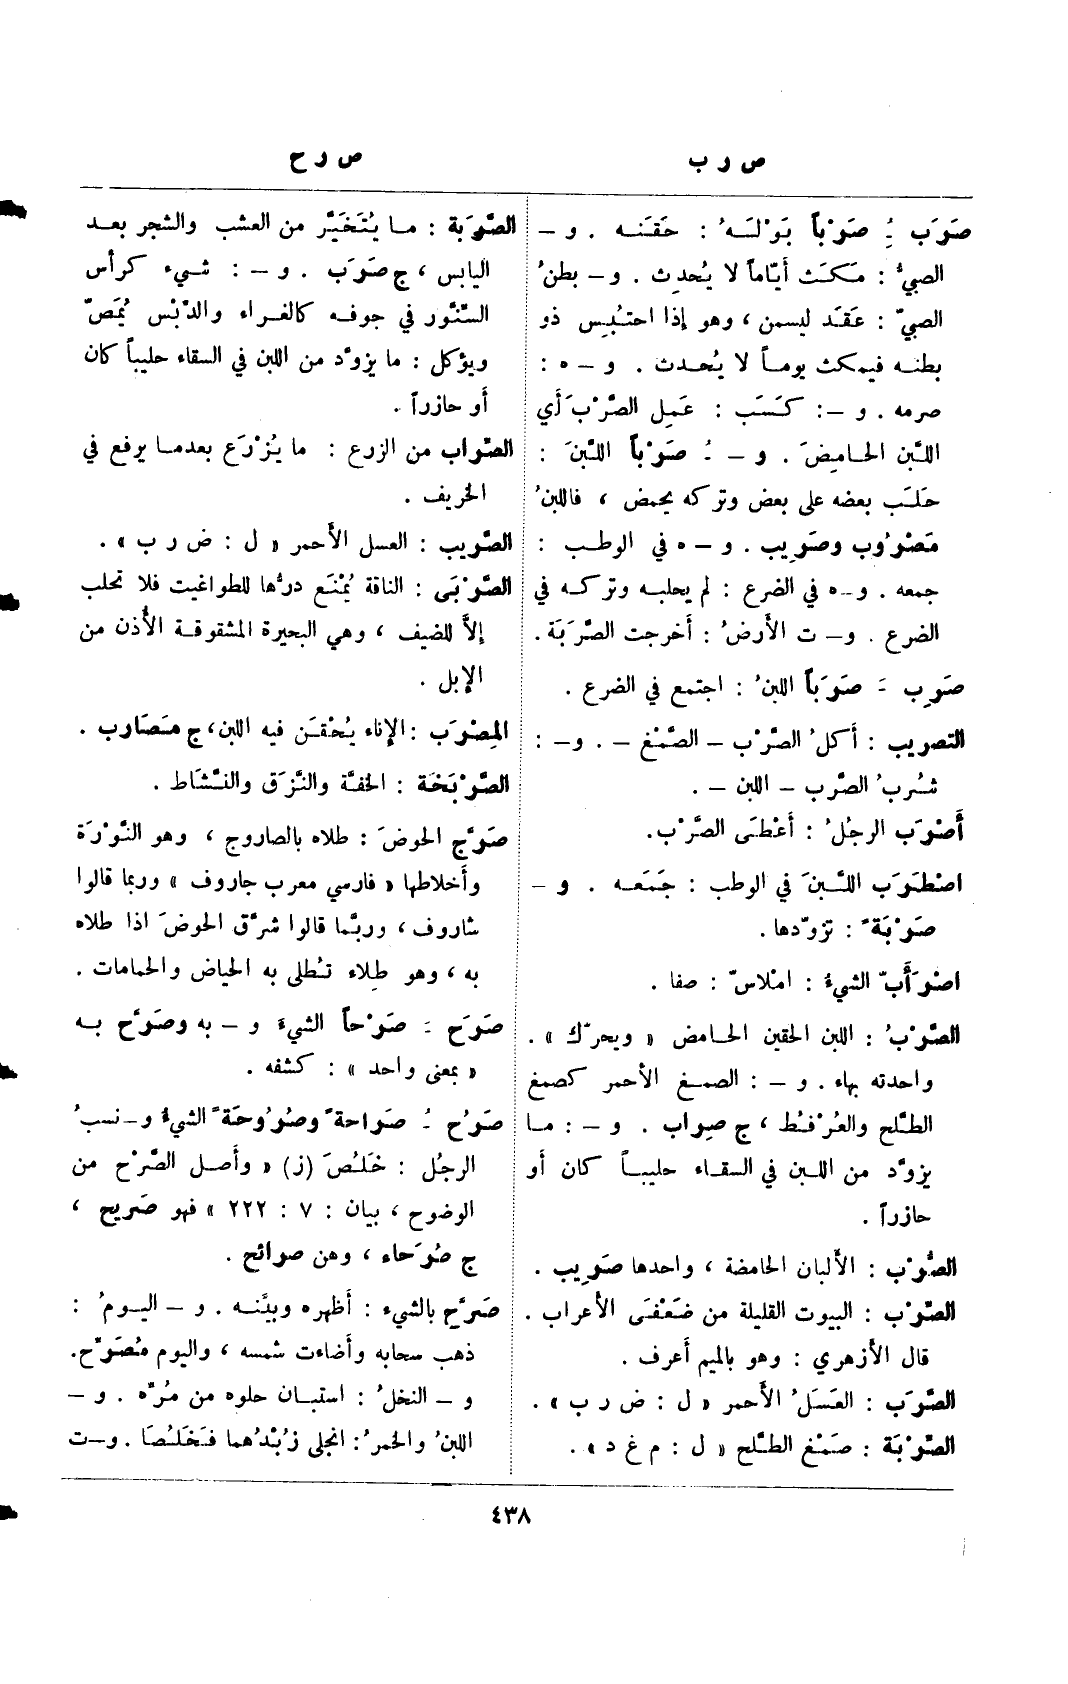 ص ر ب
ص ر ح
صَرَب ـُِ صَرْباً بَوْلَـهُ : حَقَنَـه . و –
الصبيُّ : مَكَـث أيّاماً لا يُحدِث . و – بطنُ
الصبيّ : عَقَـد ليسمن ، وهو إذا احتُبِس ذو
بطنـه فيمكث يومـاً لا يُحـدث . و – ه :
صرمه . و –: كَـسَـب : عَمِل الصَّرْبَ أي
اللبَّن الحـامِـضَ . و – ـُ صَرْباً اللَّبَنَ :
حَلَـب بعضه على بعض وتركه يحمض ، فاللبنُ
مَصْرُوب وصَرِيب . و – ه في الوطب :
جمعه . و–ه في الضرع : لم يحلبـه وتركـه في
الضرع . و– ت الأرضُ : أخرجت الصَّرَبَة .
صَرِب ـَ صَرَباً اللبنُ : اجتمع في الضرع .
التصريب : أكلُ الصَّرْب – الصَّمْغ – . و– :
شُربُ الصَّرب – اللبن – .
أَصْرَب الرجُلُ : أَعْطَى الصَّرْب.
اصْطَرَب اللَّـبَنَ في الوطب : جَمَعـه . و –
صَرْبَةً : تزوّدها .
اصْرَأَبّ الشيءُ : امْلاسّ : صفا .
الصَّرْبُ : اللبن الحقين الحـامض « ويحرّك » .
واحدته بهاء . و – : الصمـغ الأحمر كصمغ
الطـلح والعُرْفـُط ، ج صِراب . و – : مـا
يزوَّد من اللـبن في السقـاء حليبـاً كان أو
حازراً .
الصُّرْب : الألبان الحامضة ، واحدها صَرِيب .
الصِّرْب : البيوت القليلة من ضَعْفَى الأعراب .
قال الأزهري : وهو بالميم أعرف .
الصَّرَب : العَسَلُ الأحمر « ل : ض ر ب » .
الصَّرْبَة : صَمْغ الطَّـلح « ل : م غ د » .
الصَّرَبَة : مـا يُتَخَيَّر من العشب والشجر بعـد
اليابس ، ج صَرَب . و – : شيء كرأس
السِّنَّور في جوفـه كالغـراء والدِّبْس يُمَصّ
ويؤكل : ما يزوَّد من اللبن في السقاء حليباً كان
أو حازراً .
الصِّراب من الزرع : ما يُزْرَع بعدمـا يرفع في
الخريف .
الصَّريب : العسل الأحمر « ل : ض ر ب » .
الصَّرْبَى : الناقة يُمْنَع درُّها للطواغيت فلا تحلب
إلاَّ للضيف ، وهي البحيرة المشقوقـة الأُذن من
الإبل .
المِصْرَب : الإناء يُحْقَـن فيه اللبن، ج مَصَارب .
الصَّرْبَخَة : الخفَّة والنَّزَق والنَّشَاط .
صَرَّج الحوضَ : طلاه بالصاروج ، وهو النُّوْرَة
وأخلاطها « فارسي معرب جاروف » وربما قالوا
شاروف ، وربَّما قالوا شرَّق الحوضَ اذا طلاه
به ، وهو طِلاء تُطلى به الحياض والحمامات .
صَرَح ـَ صَرْحاً الشيءَ و – به وصَرَّح بـه
« بمعنى واحد » : كشفه .
صَرُح ـُ صَراحةً وصُرُوحَةً الشيءُ و– نسبُ
الرجُل : خَلُصَ (ز) « وأصل الصَّرْح من
الوضوح ، بيان : ٧ : ٢٢٢ » فهو صَريح ،
ج صُرَحاء ، وهن صرائح .
صَرَّح بالشيء : أظهره وبيَّنـه . و – اليـومُ :
ذهب سحابه وأضاءت شمسه ، واليوم مُصَرِّح.
و – النخلُ : استبـان حلوه من مُرِّه . و –
اللبنُ والخمرُ: انجلى زُبْدُهما فَخَلُصَا . و–ت
٤٣٨